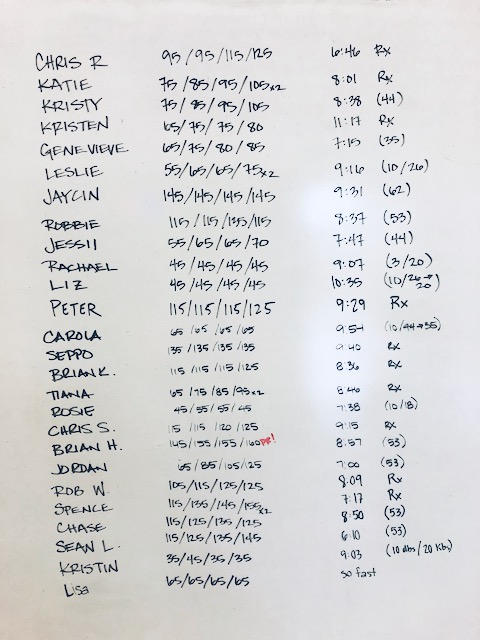 CHRIS R 95/95/115/125 6:46 Rx
KATIE 75/85/95/105x2 8:01 Rx
KRISTY 75/85/95/105 8:38 (44)
KRISTEN 65/75/75/80 11:17 Rx
GENEVIEVE 65/75/80/85 7:15 (35)
LESLIE 55/65/65/75x2 9:16 (10/26)
JAYCIN 145/145/145/145 9:31 (62)
ROBBIE 115/115/135/115 8:37 (53)
JESSII 55/65/65/70 7:47 (44)
RACHAEL 45/45/45/45 9:07 (3/20)
LIZ 45/45/45/45 10:35 (10/26→20)
PETER 115/115/115/125 9:29 Rx
CAROLA 65/65/65/65 9:54 (10/44→35)
SEPPO 135/135/135/135 9:40 Rx
BRIAN K. 115/115/115/125 8:36 Rx
TIANA 65/75/85/95x2 8:46 Rx
ROSIE 45/55/55/45 7:38 (10/18)
CHRIS S. 115/115/120/125 9:15 Rx
BRIAN H. 145/155/155/160 PR! 8:57 (53)
JORDAN 65/85/105/125 7:00 (53)
ROB W 105/115/125/125 8:09 Rx
SPENCE 115/135/145/155x2 7:17 Rx
CHASE 115/125/135/125 8:50 (53)
SEAN L. 115/125/135/145 6:10 (53)
KRISTIN 35/45/35/35 9:03 (10 dbs/20 Kbs)
Lisa 65/65/65/65 so fast